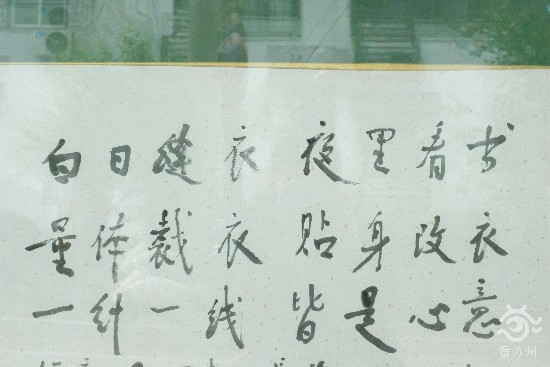 白日缝衣 夜里看书
量体裁衣 贴身改衣
一针一线 皆是心意
看苏州